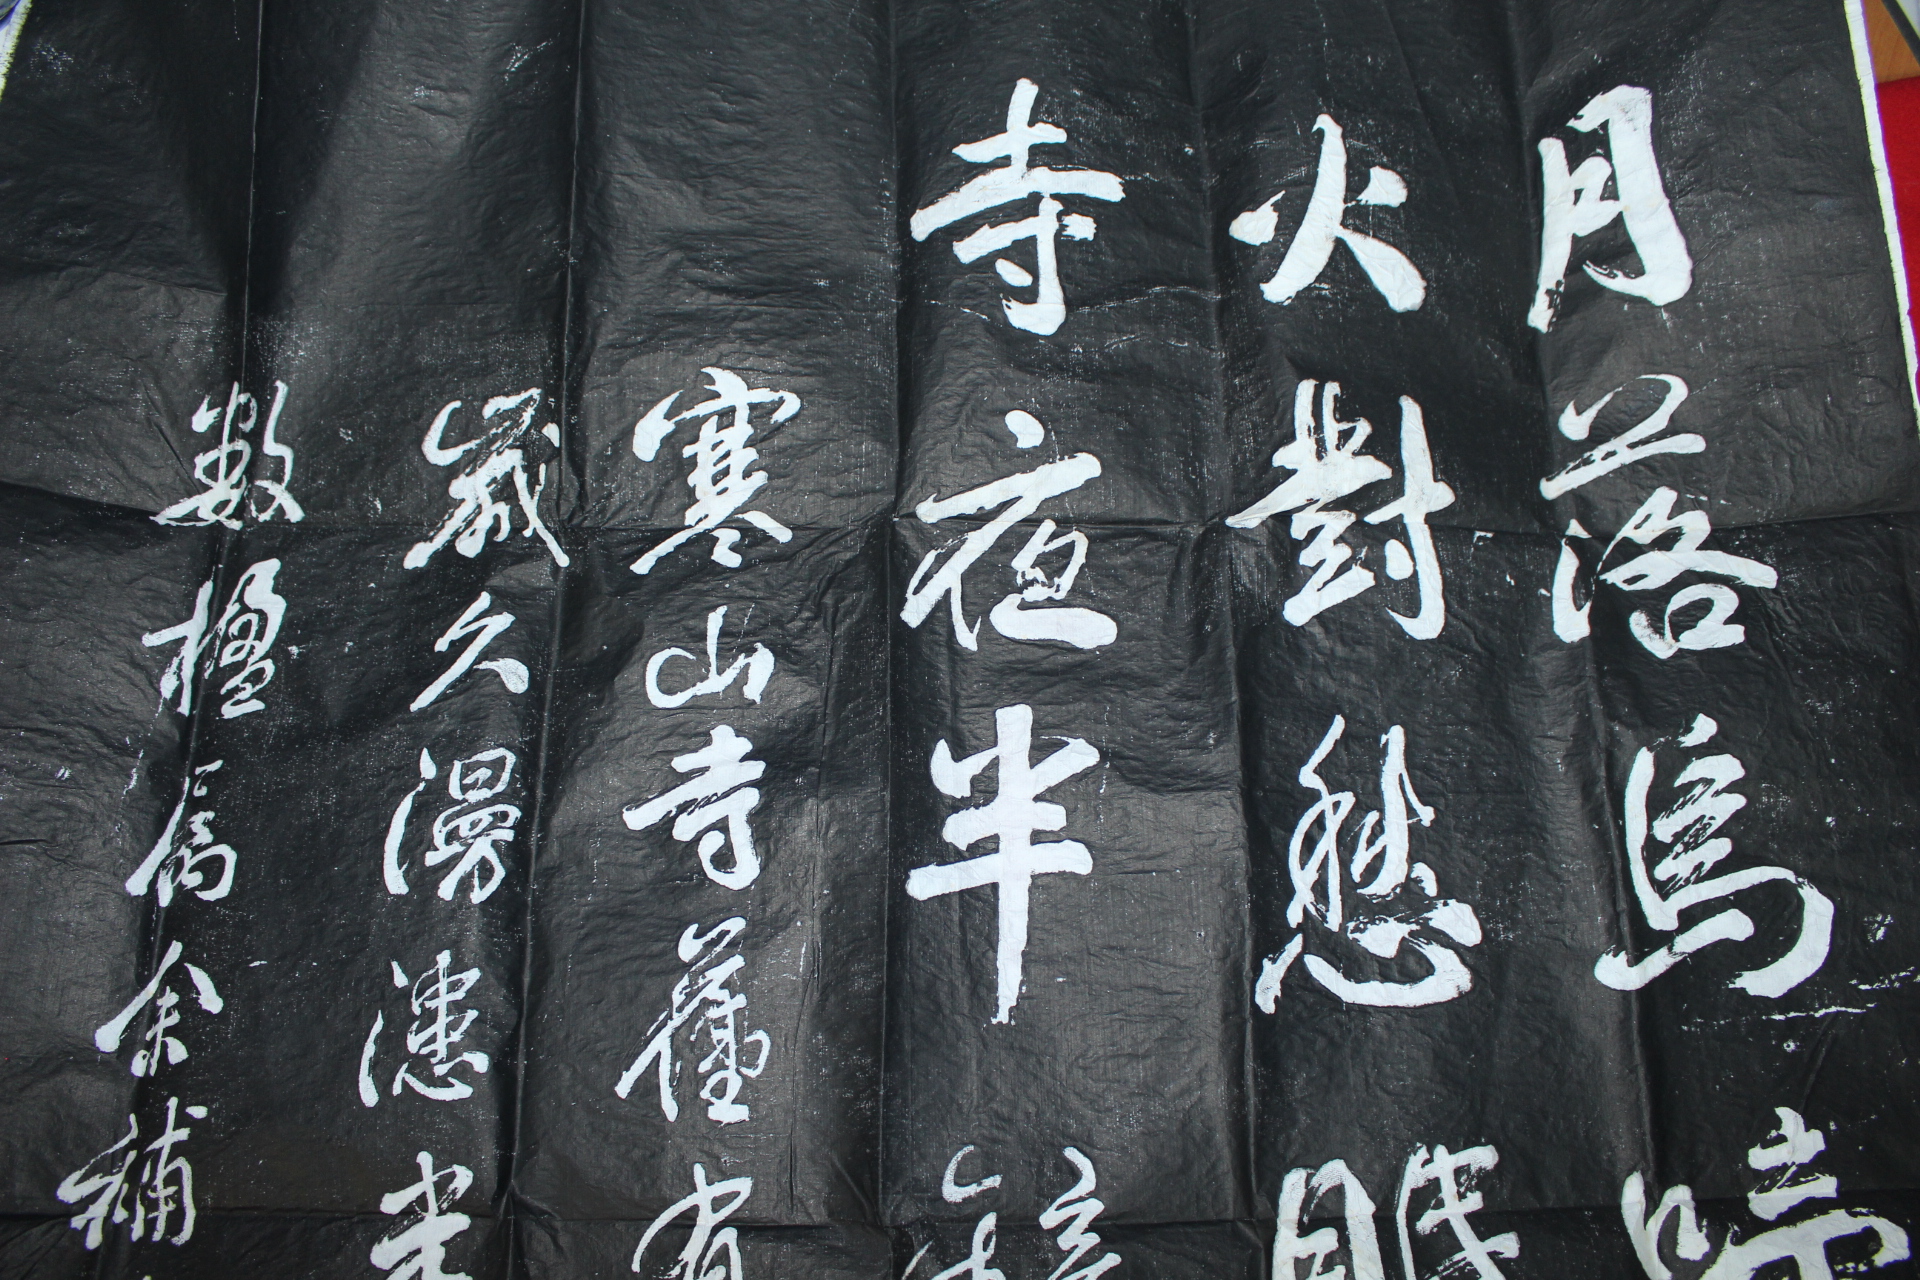 月落烏啼
火對愁眠
寺夜半鐘
寒山寺舊有
歲久漫漶
數楹屬余補